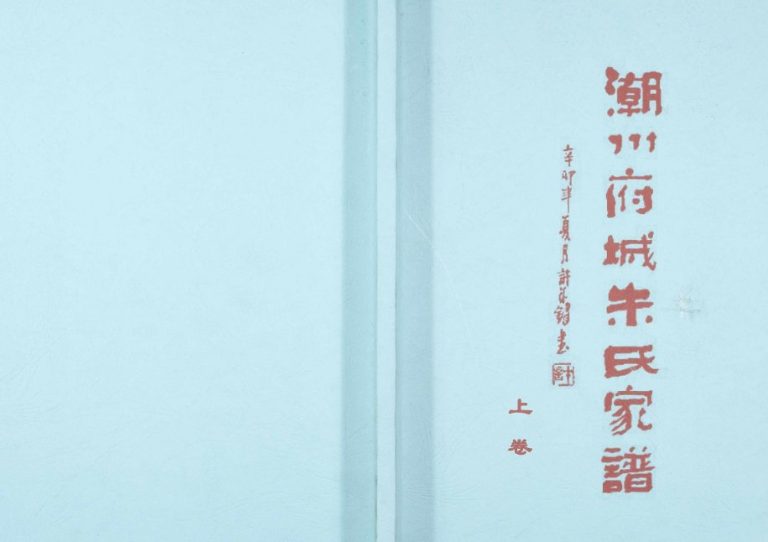 潮州府城朱氏家譜
辛卯年夏月許 書
上卷